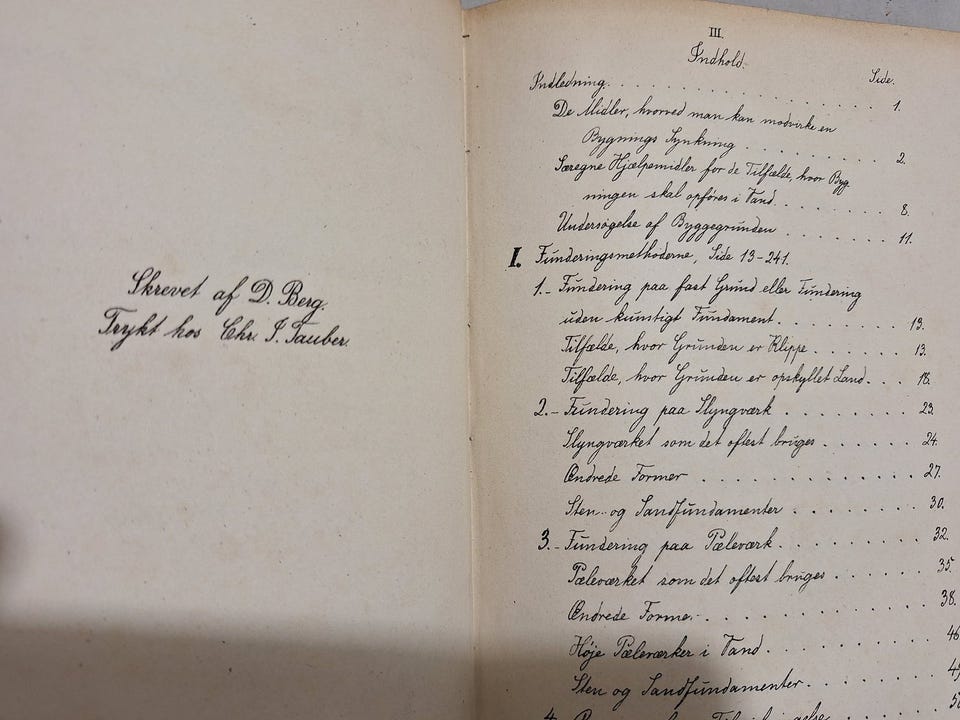 Skrevet af D. Berg.
Trykt hos Chr. J. Tauber.
III.
Indhold.
Side.
Indledning. . . . . . . . . . . . . . . . 1.
De Midler, hvorved man kan modvirke en
Bygnings Synkning . . . . . . . . . 2.
Særegne Hjælpemidler for de Tilfælde, hvor Byg-
ningen skal opföres i Vand. . . . . . . . 8.
Undersøgelse af Byggegrunden . . . . . . . 11.
I. Funderingsmethoderne, Side 13-241.
1.- Fundering paa fast Grund eller Fundering
uden kunstigt Fundament. . . . . . . . 13.
Tilfælde, hvor Grunden er Klippe . . . . . . 13.
Tilfælde, hvor Grunden er opskyllet Land. . . 18.
2.- Fundering paa Slyngværk . . . . . . . . 23.
Slyngværket som det oftest bruges . . . . . . 24.
Ændrede Former . . . . . . . . . . . . 27.
Sten- og Sandfundamenter . . . . . . . . 30.
3.- Fundering paa Pæleværk. . . . . . . . . 32.
Pæleværket som det oftest bruges . . . . . . 35.
Ændrede Former. . . . . . . . . . . . 38.
Høje Pæleværker i Vand. . . . . . . . . 46
Sten og Sandfundamenter. . . . . . . .
4.